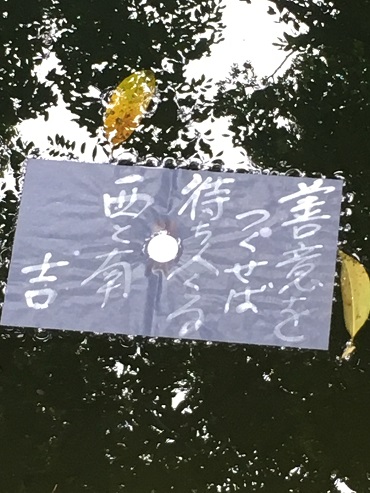 善意を
つくせば
待ち人くる
西と南
吉